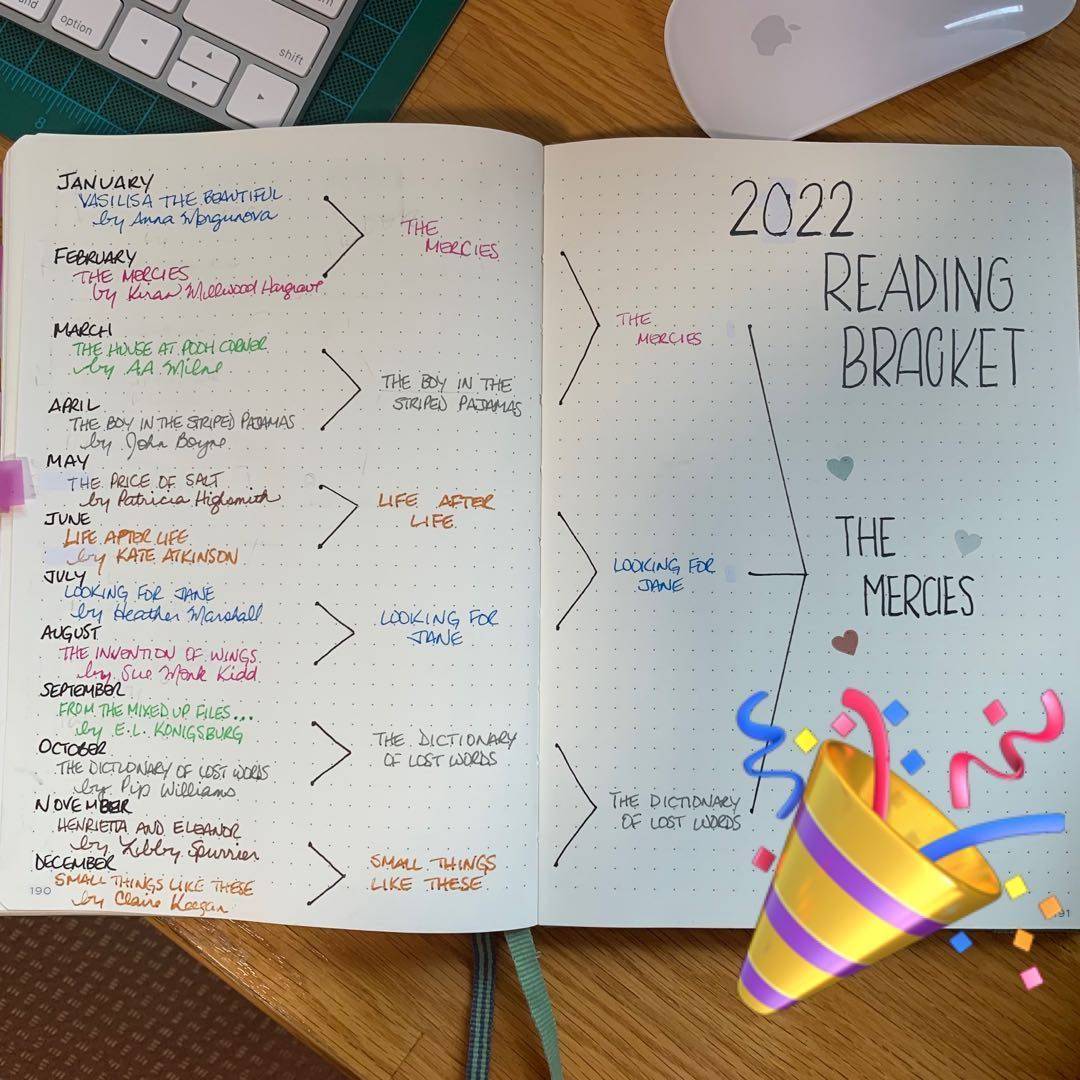 option
shift
8
JANUARY
VASILISA THE BEAUTIFUL
by Anna Morgunova
FEBRUARY
THE MERCIES
by Kiran Millwood Hargrave
MARCH
THE HOUSE AT POOH CORNER
by AA Milne
APRIL
THE BOY IN THE STRIPED PAJAMAS
by John Boyne
MAY
THE PRICE OF SALT
by Patricia Highsmith
JUNE
LIFE AFTER LIFE
by KATE ATKINSON
JULY
LOOKING FOR JANE
by Heather Marshall
AUGUST
THE INVENTION OF WINGS
by Sue Monk Kidd
SEPTEMBER
FROM THE MIXED UP FILES...
by E.L. KONIGSBURG
OCTOBER
THE DICTIONARY OF LOST WORDS
by Pip Williams
NOVEMBER
HENRIETTA AND ELEANOR
by Libby Spurrier
DECEMBER
SMALL THINGS LIKE THESE
by Claire Keegan
190
THE
MERCIES
THE BOY IN THE
STRIPED PAJAMAS
LIFE AFTER
LIFE
LOOKING FOR
JANE
THE DICTIONARY
OF LOST WORDS
SMALL THINGS
LIKE THESE
THE
MERCIES
LOOKING FOR
JANE
THE DICTIONARY
OF LOST WORDS
2022
READING
BRACKET
THE
MERCIES